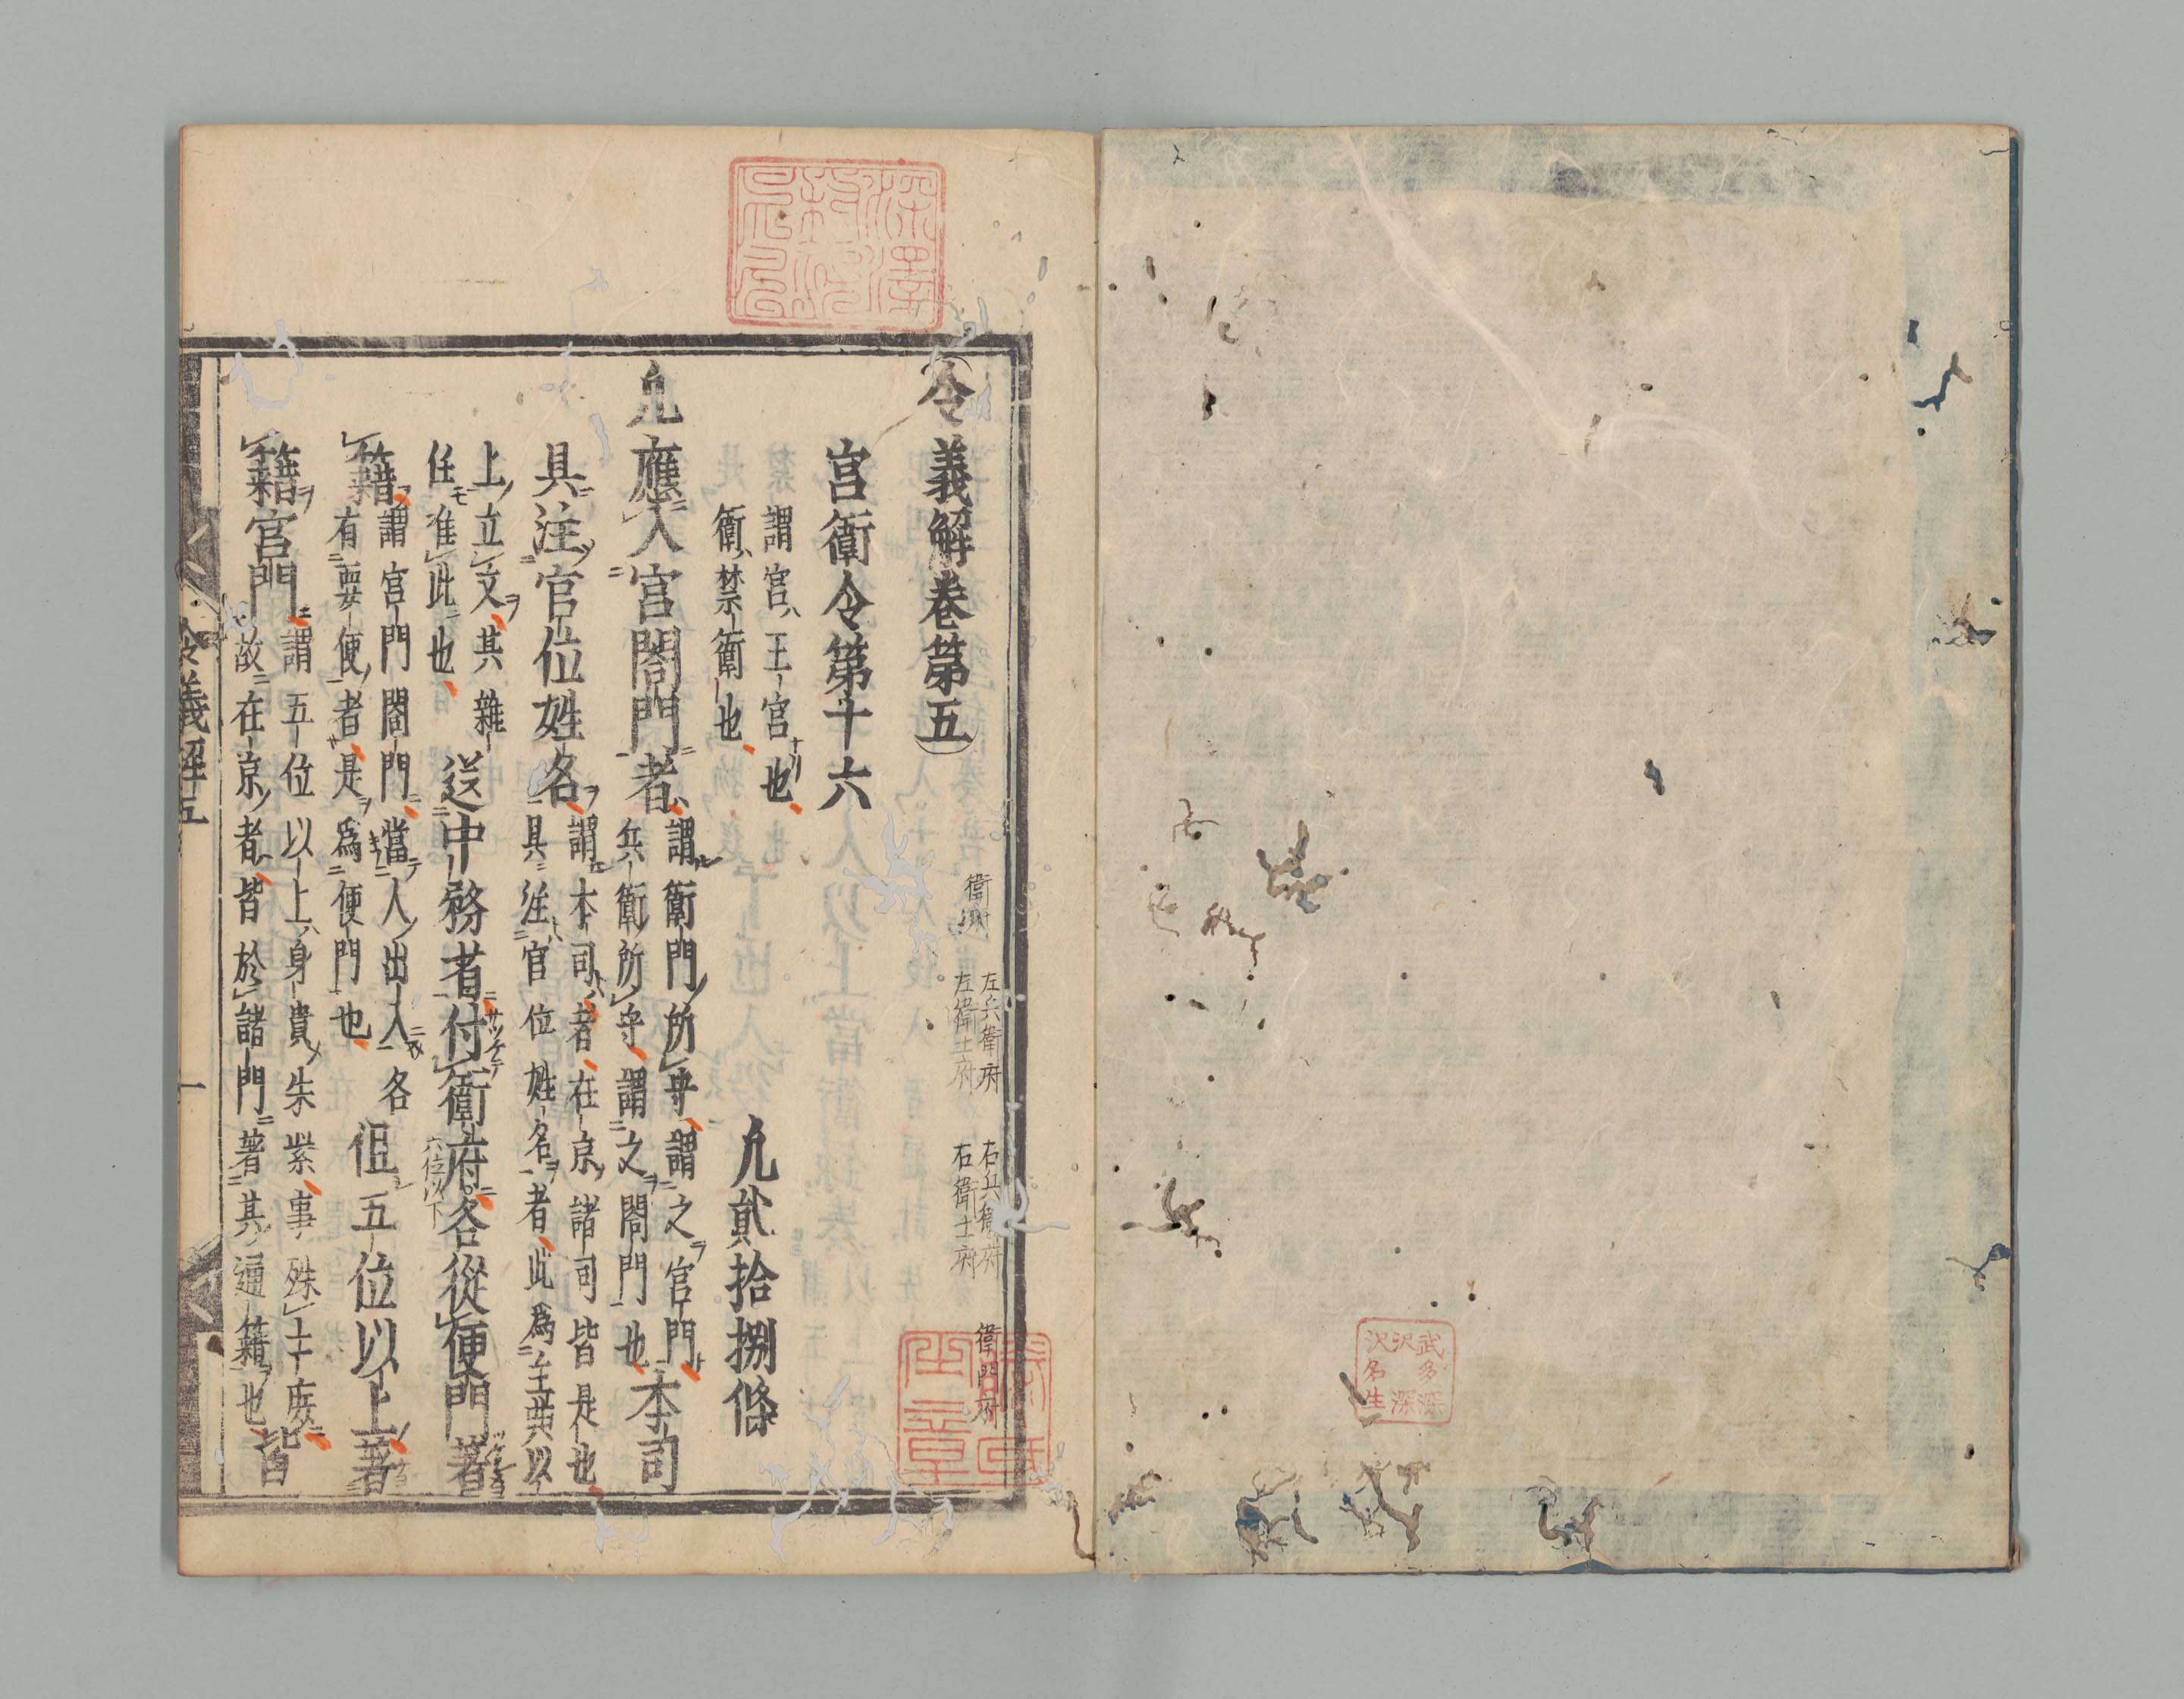 令義解卷第五
衛府
左兵衛府
左衛士府
右兵衛府
右衛士府
衛門府
宮衛令第十六
謂宮、王宮也
衛、禁衛也
凢貳拾捌條
凢應入宮閤門者
謂衛門所守、謂之宮門
兵衛所守、謂之閤門也
本司
具注官位姓名
謂本司者、在京諸司皆是也
具注官位姓名者、此爲主典以
上立文、其雜
任准此也
送中務省付衛府各從便門著
六位以下
籍
謂宮門閤門、當人出入各
有要便者、是爲便門也
但五位以上著
籍宮門
謂五位以上、身貴朱紫、事殊士庶
故在京者、皆於諸門著其通籍也
皆
令義解五
一
武多深
沢深
沢名生